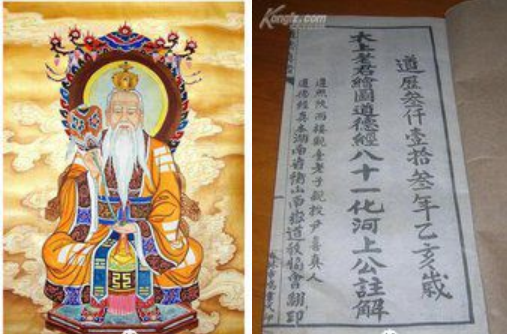 Kongfz.com
道歷叁仟壹拾叁年乙亥歲
太上老君繪圖道德經八十一化河上公註解
遵照陝西樓觀臺老子親授尹喜真人
道德經真本湖南省衡山南嶽道教協會翻印